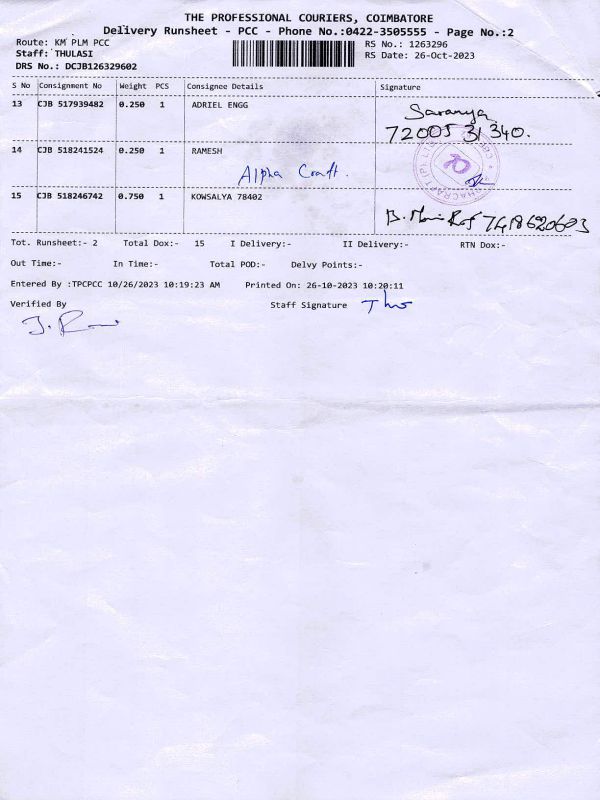 THE PROFESSIONAL COURIERS, COIMBATORE
Delivery Runsheet - PCC - Phone No.:0422-3505555 - Page No.:2
Route: KM PLM PCC
RS No.: 1263296
Staff: THULASI
RS Date: 26-Oct-2023
DRS No.: DCJB126329602
S No Consignment No Weight PCS Consignee Details Signature
13 CJB 517939482 0.250 1 ADRIEL ENGG
Saranya
72005 31340.
14 CJB 518241524 0.250 1 RAMESH
Alpha Craft.
15 CJB 518246742 0.750 1 KOWSALYA 78402
7418620603
Tot. Runsheet:- 2 Total Dox:- 15 I Delivery:- II Delivery:- RTN Dox:-
Out Time:- In Time:- Total POD:- Delvy Points:-
Entered By :TPCPCC 10/26/2023 10:19:23 AM Printed On: 26-10-2023 10:20:11
Verified By Staff Signature